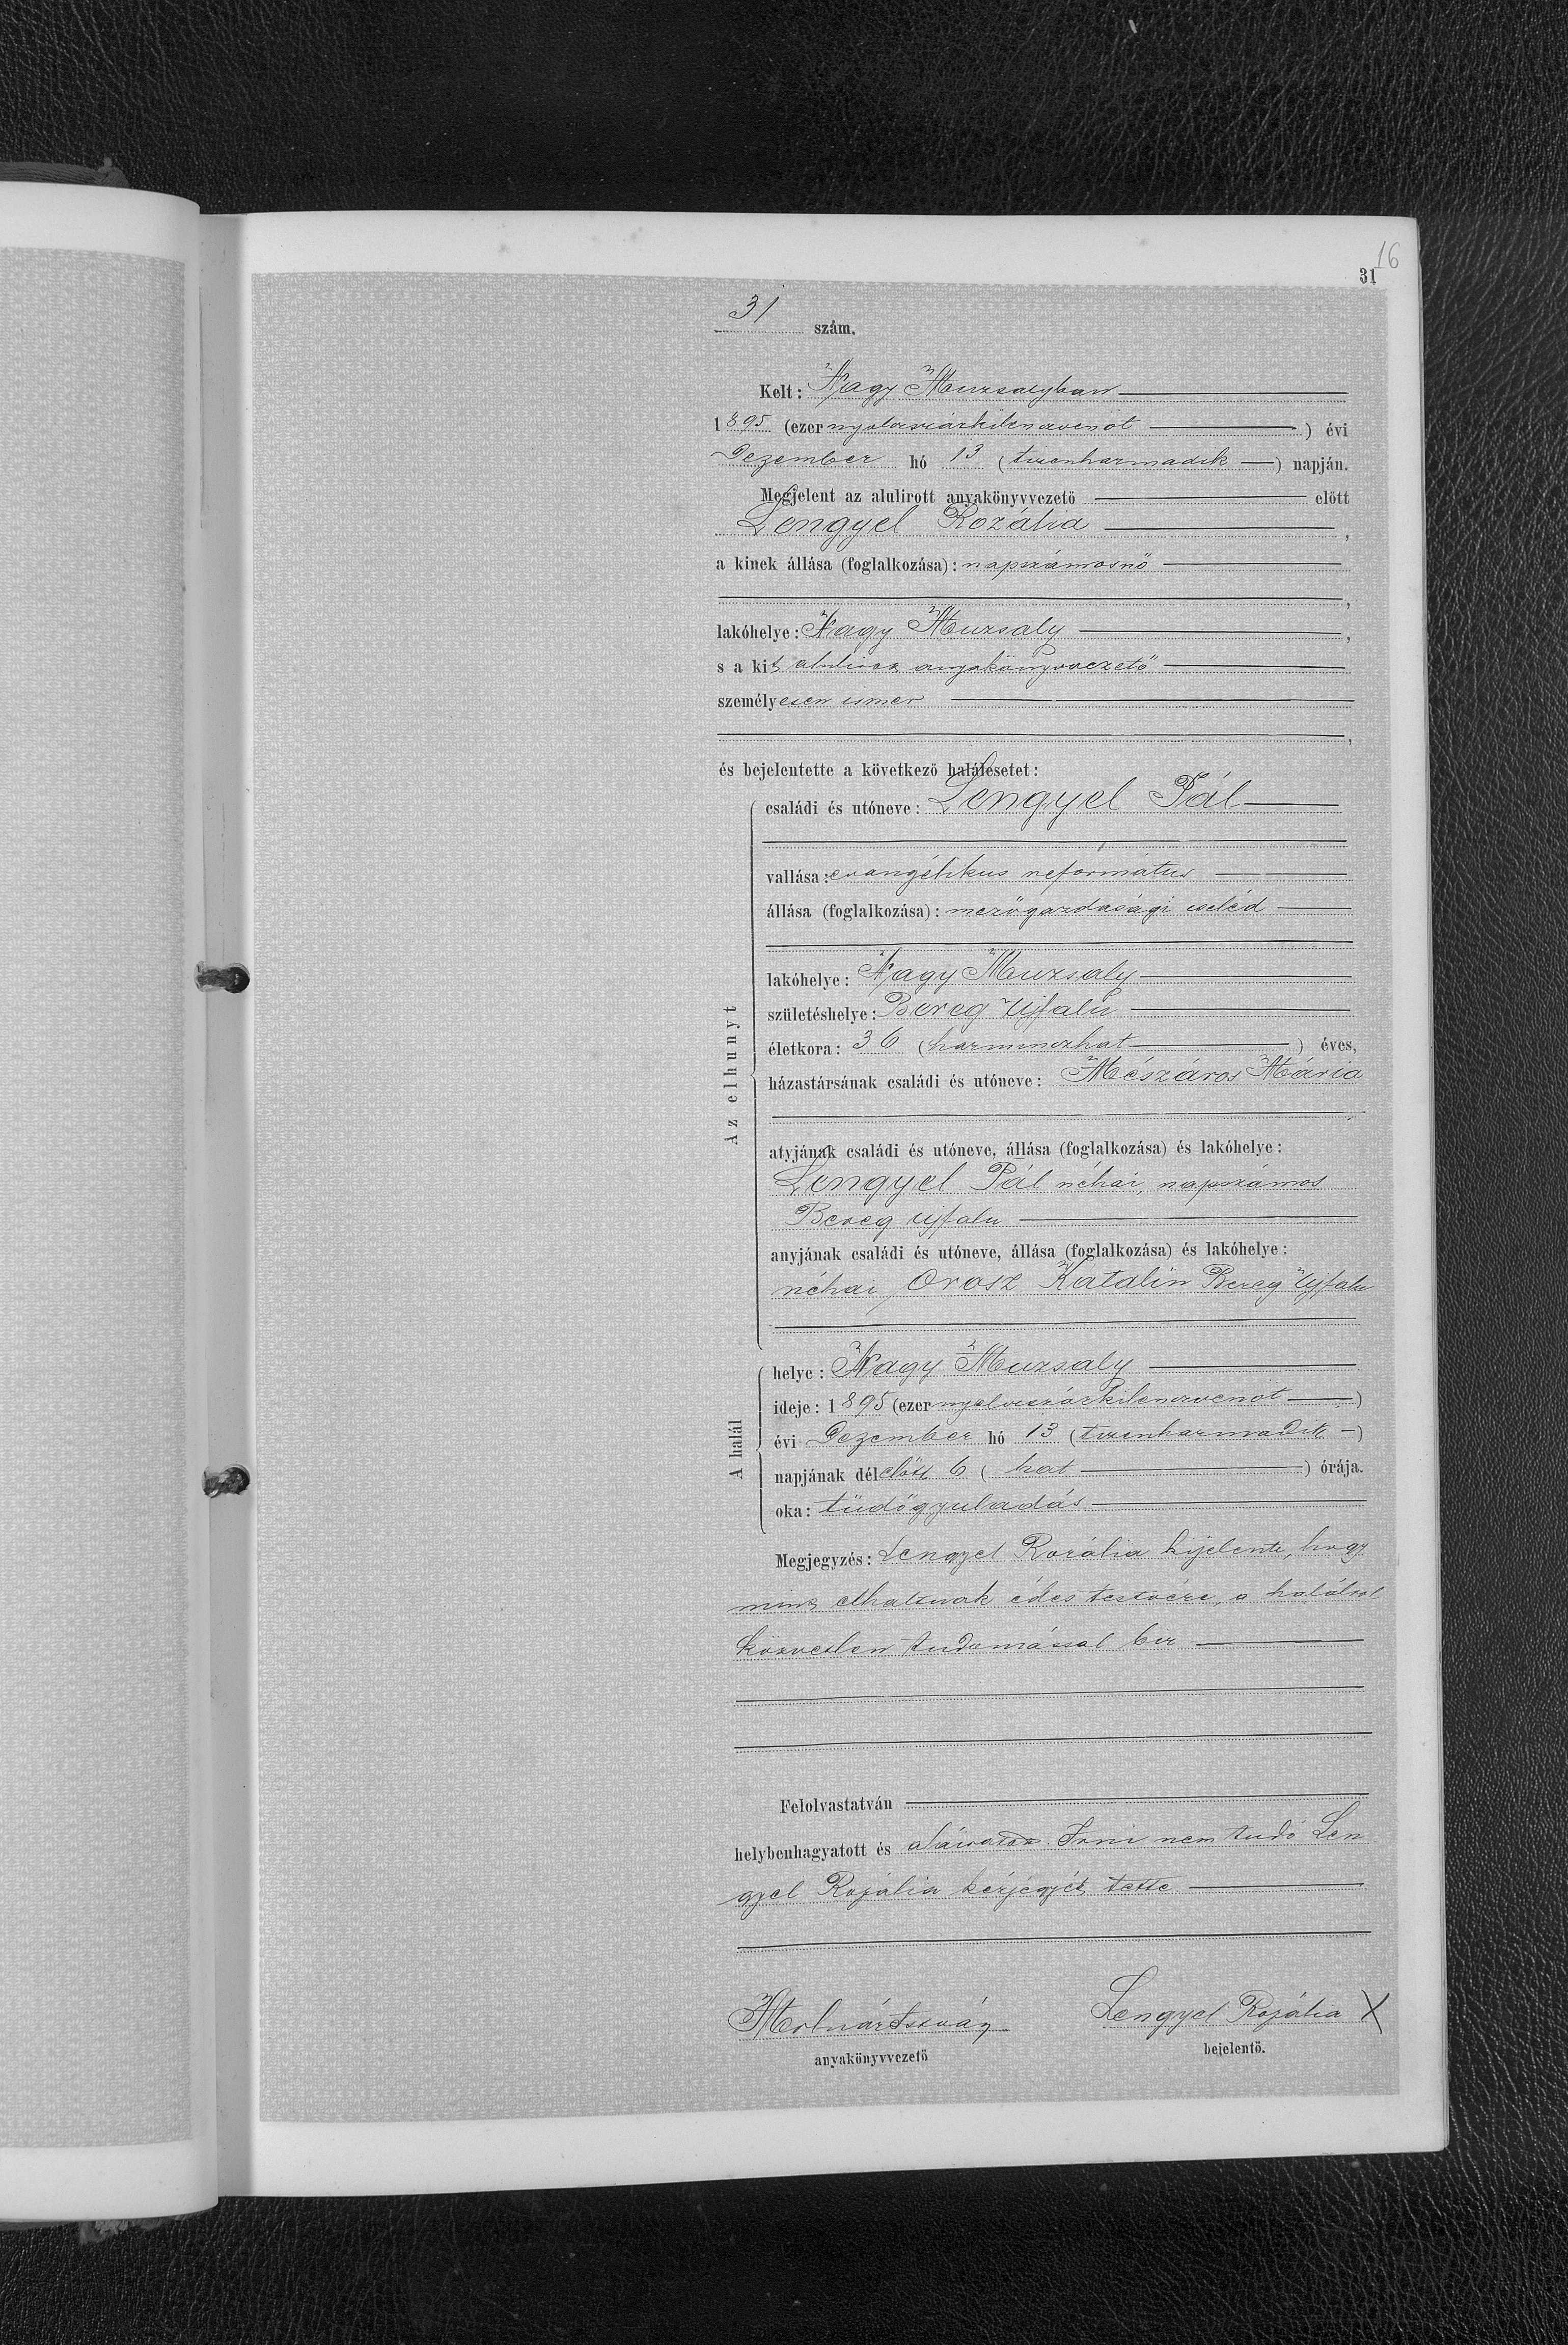 16
31
31 szám.
Kelt: Nagy Muzsalyban
1895 (ezer nyolczszázkilenczvenöt ) évi
Dezember hó 13 (tizenharmadik ) napján.
Megjelent az alulirott anyakönyvvezető előtt
Lengyel Rozália ,
a kinek állása (foglalkozása): napszámosnő
,
lakóhelye: Nagy Muzsaly ,
s a kit alulirot anyakönyvvezető
személyesen ismer
,
és bejelentette a következő halálesetet:
Az elhunyt
családi és utóneve: Lengyel Pál
vallása: evangélikus református
állása (foglalkozása): mezőgazdasági cseléd
lakóhelye: Nagy Muzsaly
születéshelye: Bereg Ujfalu
életkora: 36 (harminczhat ) éves,
házastársának családi és utóneve: Mészáros Mária
atyjának családi és utóneve, állása (foglalkozása) és lakóhelye:
Lengyel Pál néhai, napszámos
Bereg ujfalu
anyjának családi és utóneve, állása (foglalkozása) és lakóhelye:
néhai, Orosz Katalin Bereg Ujfalu
A halál
helye: Nagy Muzsaly
ideje: 1895 (ezer nyolczszázkilenczvenöt )
évi Dezember hó 13 (tizenharmadik )
napjának délelőtt 6 ( hat ) órája.
oka: tüdőgyuladás
Megjegyzés: Lengyel Rozália kijelenti, hogy
mint elhaltnak édes testvére, a halálról
közvetlen tudomással bir
Felolvastatván
helybenhagyatott és aláiratott. Irni nem tudó Len
gyel Rozália kézjegyét tette
Molnár István Lengyel Rozália X
anyakönyvvezető bejelentő.